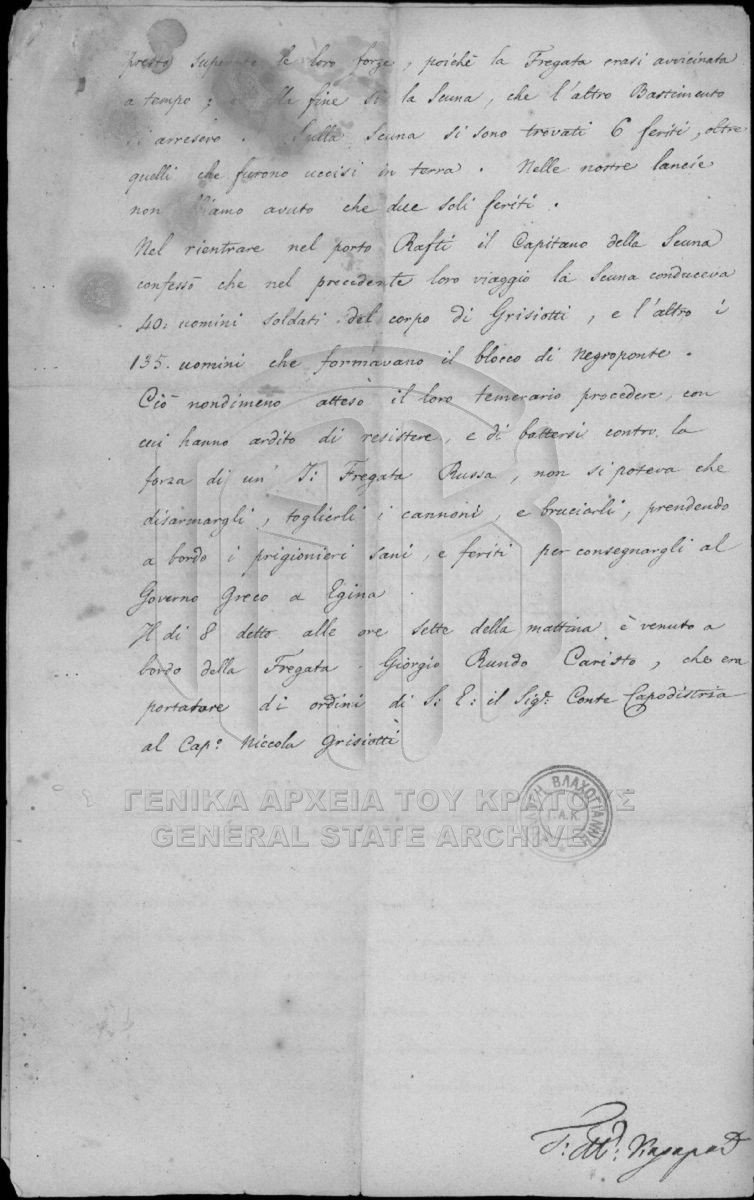 presto superato le loro forze, poichè la Fregata erasi avvicinata
a tempo; e alla fine sì la Scuna, che l'altro Bastimento
si arresero. Sulla Scuna si sono trovati 6 feriti, oltre
quelli che furono uccisi in terra. Nelle nostre lancie
non abbiamo avuto che due soli feriti.
Nel rientrare nel porto Rafti il Capitano della Scuna
confessò che nel precedente loro viaggio la Scuna conduceva
40: uomini soldati del corpo di Grisiotti, e l'altro i
135. uomini che formavano il blocco di Negroponte.
Ciò nondimeno atteso il loro temerario procedere, con
cui hanno ardito di resistere, e di battersi contro la
forza di un' I: Fregata Russa, non si poteva che
disarmargli, toglierli i cannoni, e bruciarli, prendendo
a bordo i prigionieri sani, e feriti per consegnargli al
Governo Greco a Egina.
Il dì 8 detto alle ore sette della mattina è venuto a
bordo della Fregata Giorgio Rundo Caristo, che era
portatore di ordini di S: E: il Sigr: Conte Capodistria
al Capo. Niccola Grisiotti
ΓΕΝΙΚΑ ΑΡΧΕΙΑ ΤΟΥ ΚΡΑΤΟΥΣ
GENERAL STATE ARCHIVES
ΒΛΑΧΟΓΙΑΝΝΗ
Γ.Α.Κ.